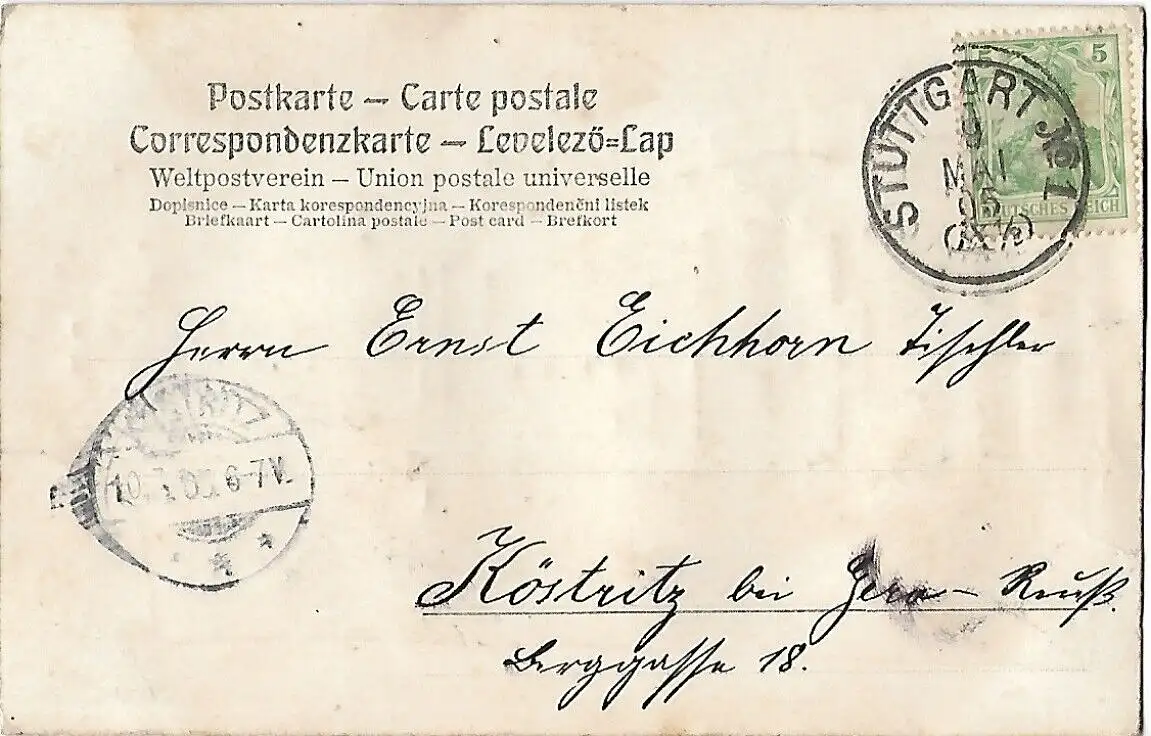 Postkarte – Carte postale
Correspondenzkarte – Levelező=Lap
Weltpostverein – Union postale universelle
Dopisnice – Karta korespondencyjna – Korespondenčni listek
Briefkaart – Cartolina postale – Post card – Brefkort
5 5
DEUTSCHES REICH
STUTTGART No 1
9
MAI
05
Herrn Ernst Eichhorn Tischler
6-7V.
Köstritz bei Gera – Reuß.
Berggasse 18.